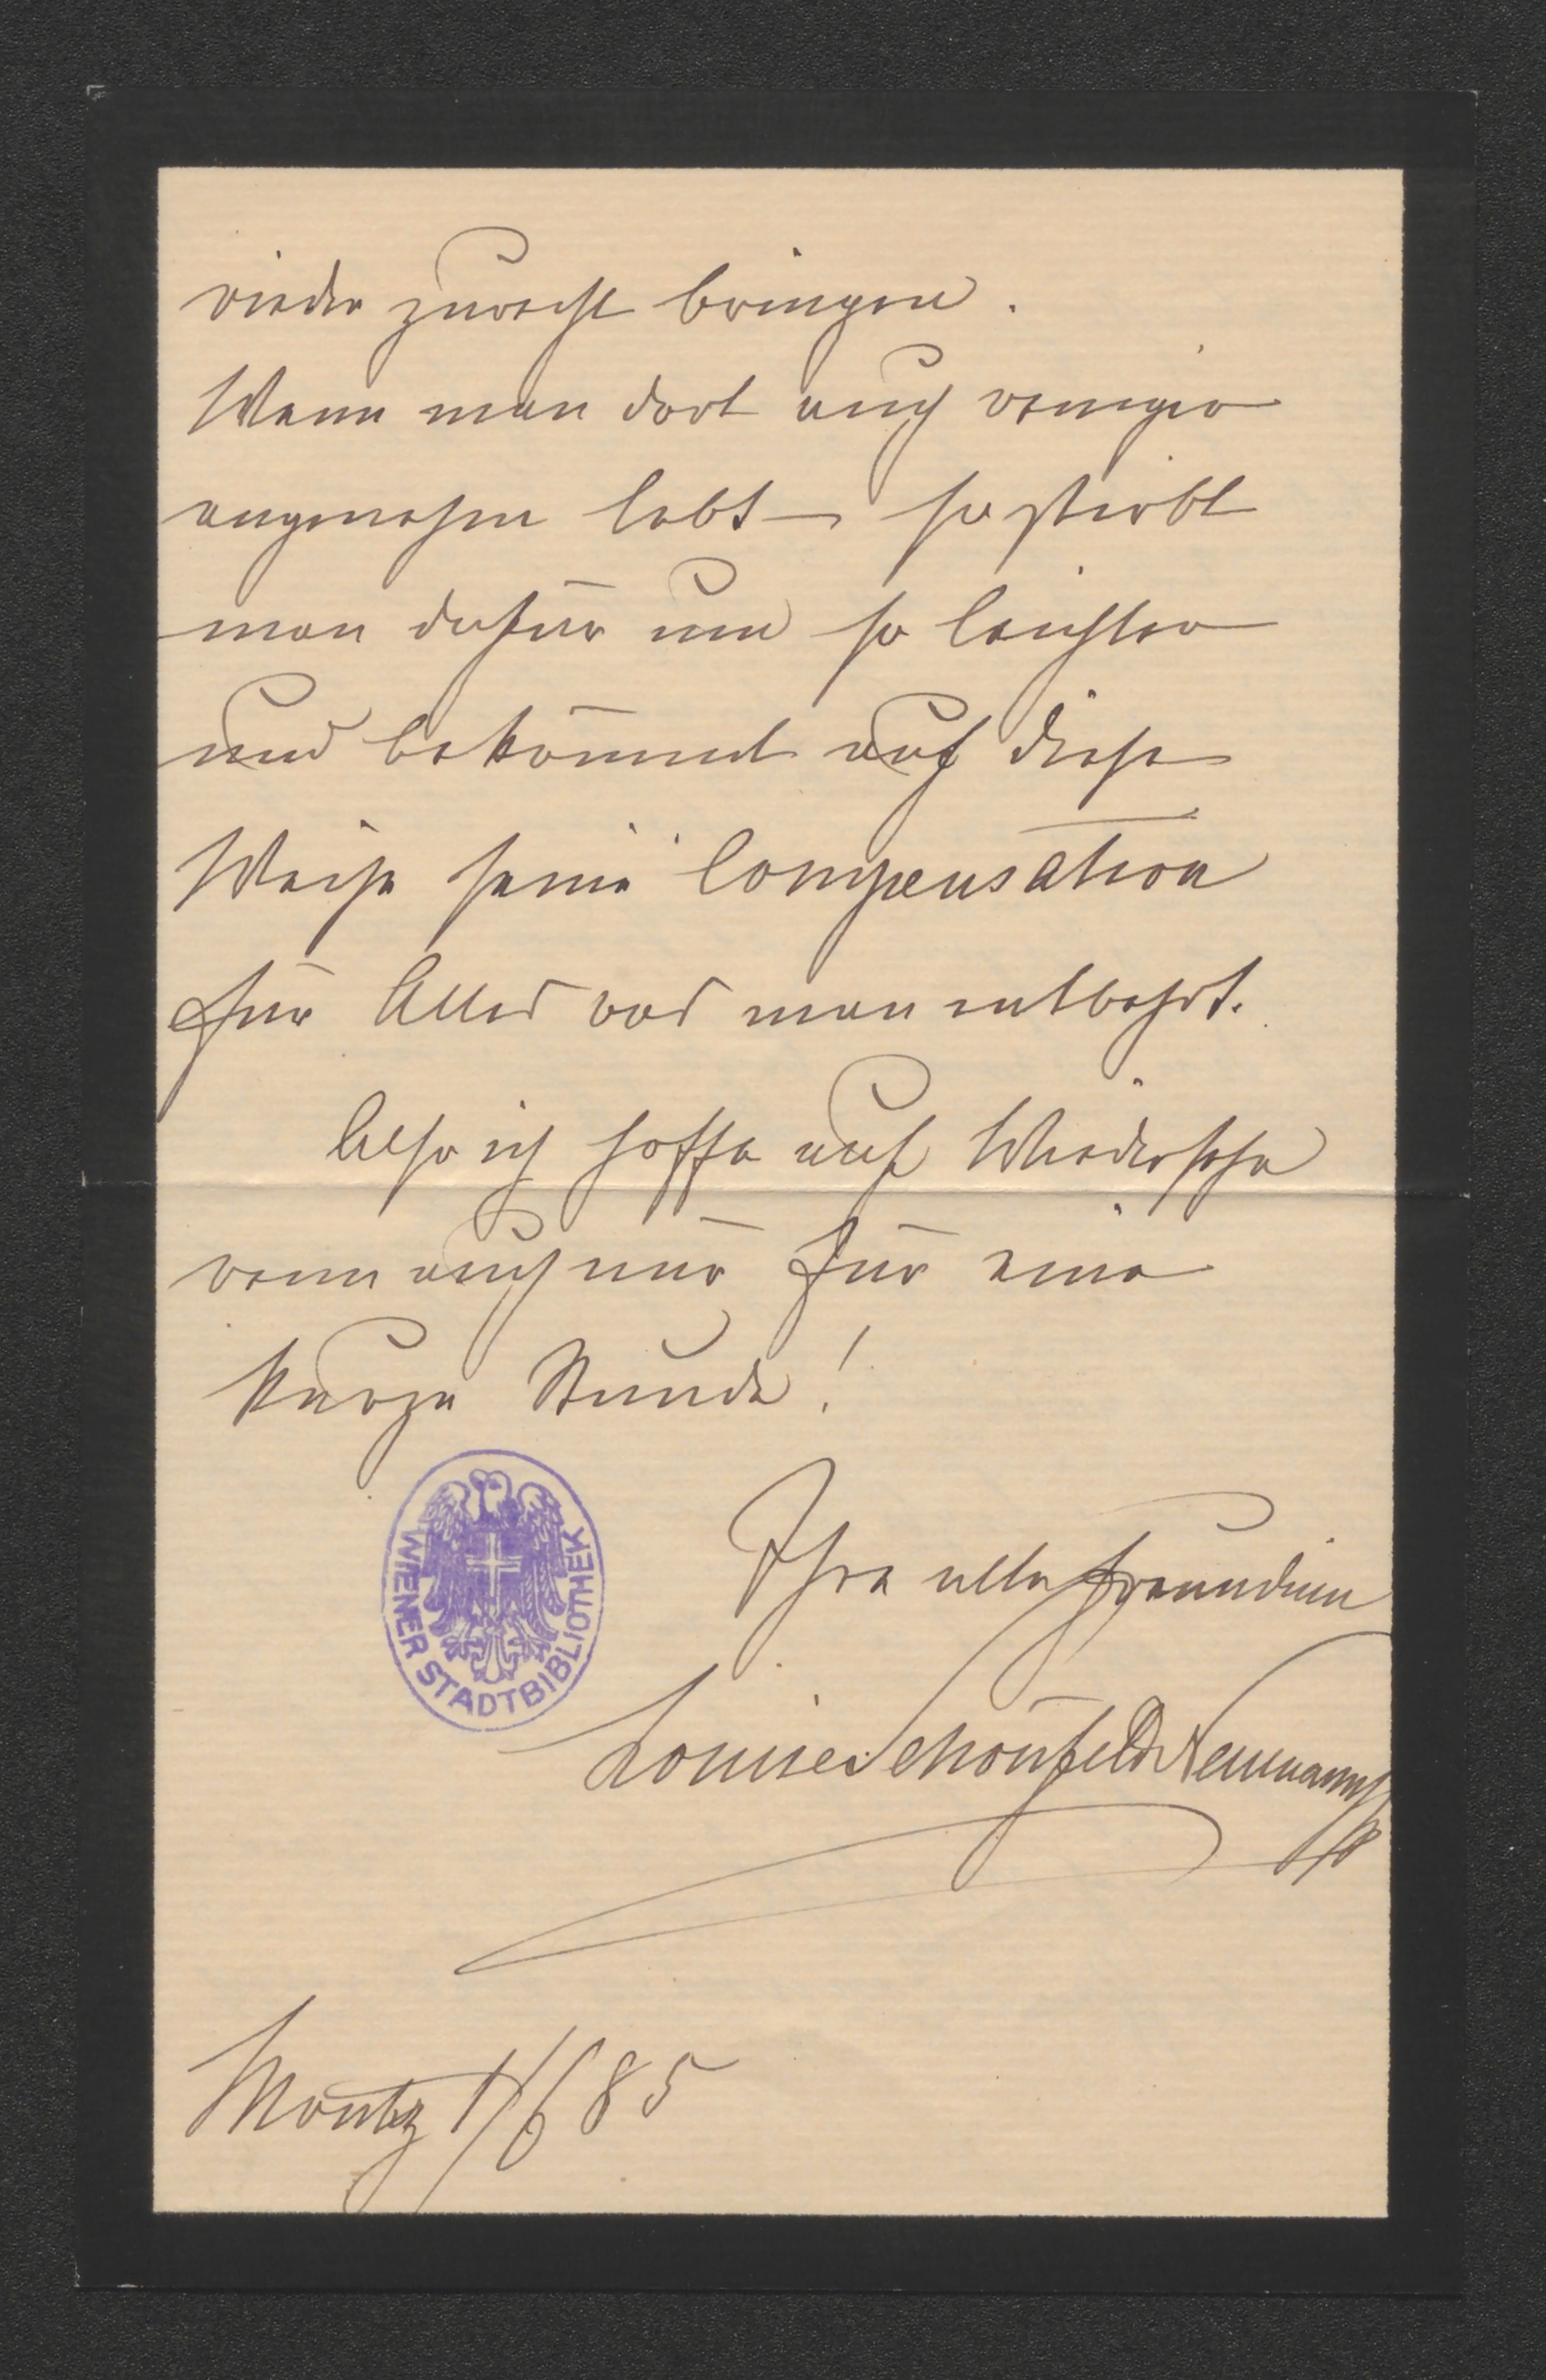 wieder zurecht bringen.
Wenn man dort auch weniger
angenehm lebt – so stirbt
man dafür um so leichter
und bekömmt auf diese
Weise seine Compensation
für Alles was man entbehrt.
Also ich hoffe auf Wiedersehn
wenn auch nur für eine
kurze Stunde!
Ihre alte Freundin
Louise Schönfeld Neumann
WIENER STADTBIBLIOTHEK
1/6 85